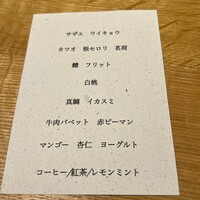 サザエ　ウイキョウ
カツオ　根セロリ　茗荷
鱧　フリット
白桃
真鯛　イカスミ
牛肉バベット　赤ピーマン
マンゴー　杏仁　ヨーグルト
コーヒー/紅茶/レモンミント